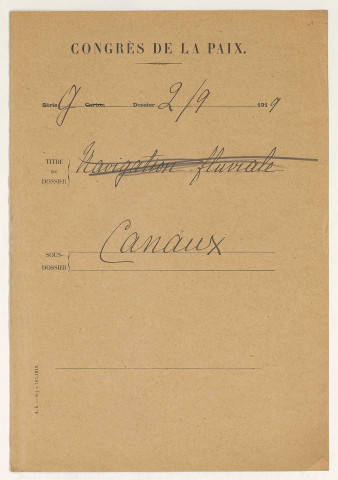 CONGRÈS DE LA PAIX.
Série G Carton Dossier 2/9 1919
TITRE DU DOSSIER Navigation fluviale
SOUS-DOSSIER Canaux